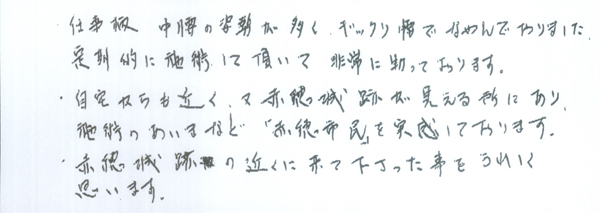 ・仕事柄 中腰の姿勢が多く、ギックリ腰でなやんでおりました
定期的に施術して頂いて 非常に助かっております。
・自宅からも近く、又 赤穂城跡が見える所にあり、
施術のあいまなど「赤穂市民」を実感しております。
・赤穂城跡の近くに来て下さった事をうれしく
思います。